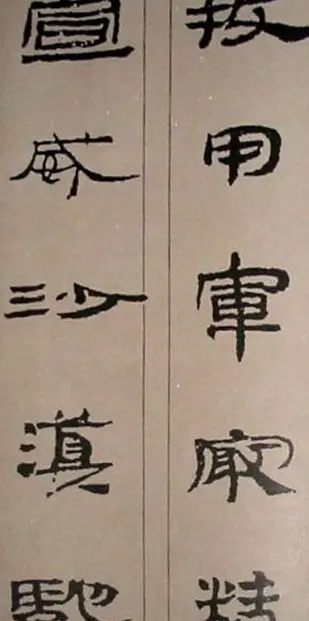 牧用軍最精
宣威沙漠馳